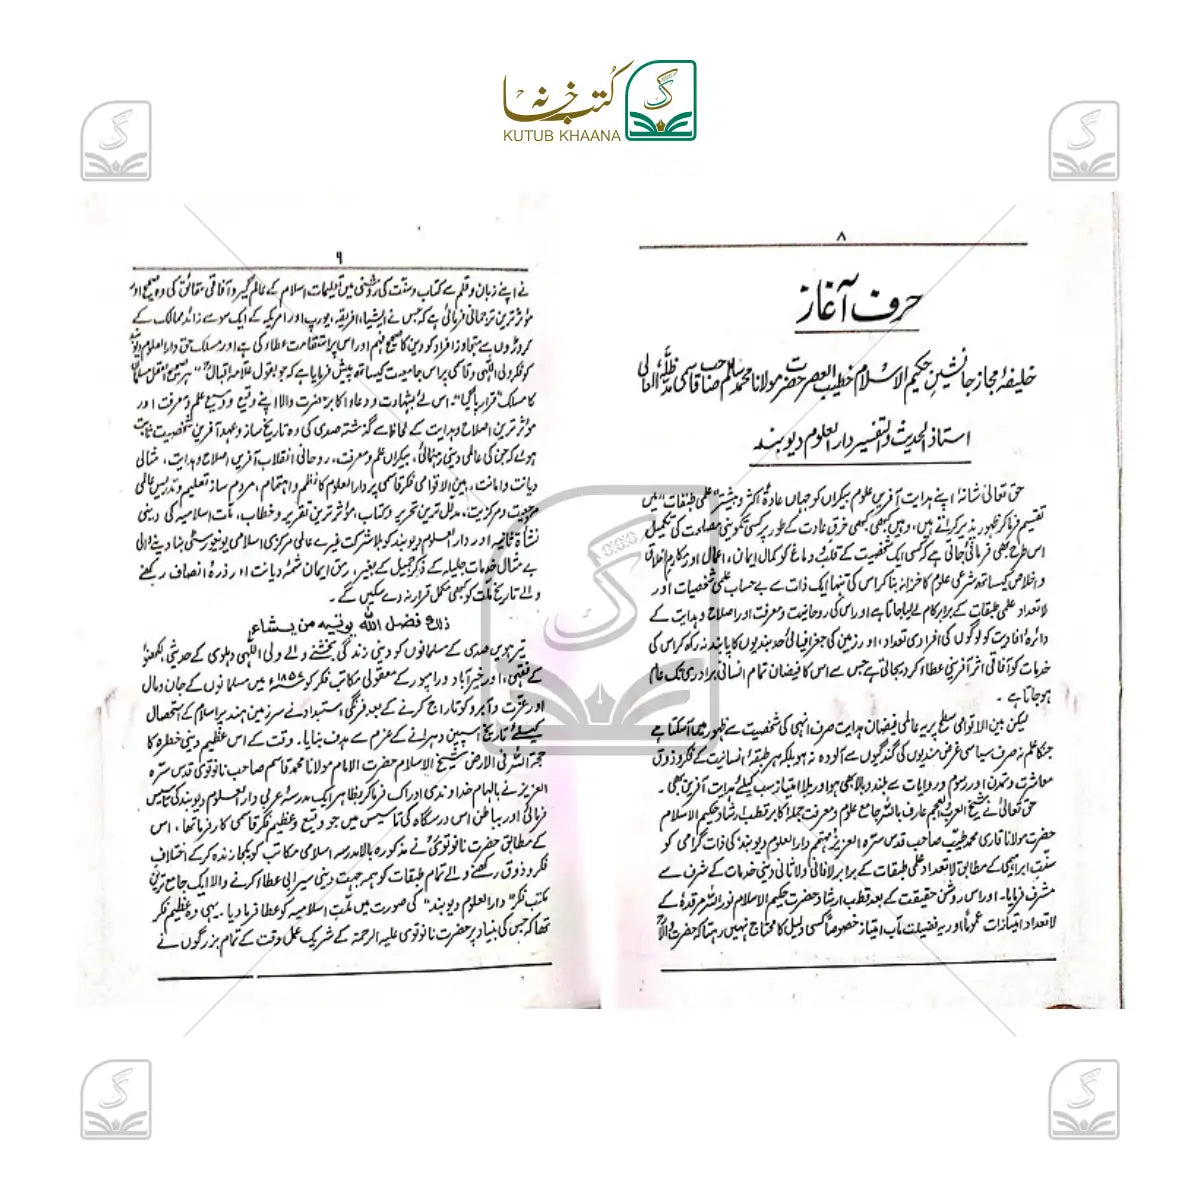 کتب خانہ
KUTUB KHAANA
۸
حرف آغاز
خلیفۂ مجاز جانشینِ حکیم الاسلام خطیب العصر حضرت مولانا محمد سالم صاحب قاسمی مدظلہٗ العالی
استاذ الحدیث والتفسیر دارالعلوم دیوبند
حق تعالیٰ شانہٗ اپنے ہدایت آفریں علوم بیکراں کو جہاں عادۃً اکثر و بیشتر "علمی طبقات" میں
تقسیم فرما کر ظہور پذیر کراتے ہیں، وہیں کبھی کبھی خرق عادت کے طور پر کسی تکوینی مصلحت کی تکمیل
اس طرح بھی فرمائی جاتی ہے کہ کسی ایک شخصیت کے قلب و دماغ کو کمال ایمان، اعمال اور مکارم اخلاق
و اخلاص کیساتھ شرعی علوم کا خزانہ بنا کر اس کی تنہا ایک ذات سے بے حساب علمی شخصیات اور
لا تعداد علمی طبقات کے برابر کام لے لیا جاتا ہے اور اس کی روحانیت و معرفت اور اصلاح و ہدایت کے
دائرۂ افادیت کو لوگوں کی افرادی تعداد، اور زمین کی جغرافیائی حد بندیوں کا پابند نہ رکھ کر اس کی
خدمات کو آفاقی اثر آفرینی عطاء کر دیجاتی ہے جس سے اس کا فیضان تمام انسانی برادری تک عام
ہو جاتا ہے۔
لیکن بین الاقوامی سطح پر یہ عالمی فیضان ہدایت صرف انہی کی شخصیت سے ظہور میں آ سکتا ہے
جنکا علم نہ صرف سیاسی غرض مندیوں کی گندگیوں سے آلودہ نہ ہو بلکہ ہر طبقۂ انسانیت کے فکر و ذوق
معاشرت و تمدن اور رسوم و روایات سے بلند و بالا بھی ہو اور بلا امتیاز سب کیلئے ہدایت آفریں بھی۔
حق تعالیٰ نے شیخ العرب والعجم عارف باللہ جامع علوم و معرفت جدنا اکابر قطب ارشاد حکیم الاسلام
حضرت مولانا قاری محمد طیب صاحب قدس سرہ العزیز مہتمم دارالعلوم دیوبند کی ذات گرامی کو
سنت ابراہیمی کے مطابق لا تعداد علمی طبقات کے برابر لافانی و لاثانی دینی خدمات کے شرف سے
مشرف فرمایا۔ اور اس روشن حقیقت کے بعد قطب ارشاد حضرت حکیم الاسلام نور اللہ مرقدہ کے
لا تعداد امتیازات عموماً اور یہ فضیلت مآب امتیاز خصوصاً کسی دلیل کا محتاج نہیں رہتا کہ حضرت والا
۹
نے اپنے زبان و قلم سے کتاب و سنت کی روشنی میں تعلیمات اسلام کے عالم گیر و آفاقی حقائق کی وہ صحیح اور
مؤثر ترین ترجمانی فرمائی ہے کہ جس نے ایشیا، افریقہ، یورپ اور امریکہ کے ایک سو سے زائد ممالک کے
کروڑوں سے متجاوز افراد کو دین کا صحیح فہم اور اس پر استقامت عطاء کی ہے اور مسلک حق دارالعلوم دیوبند
کو فکر ولی اللہی و قاسمی پر اس جامعیت کیساتھ پیش فرمایا ہے کہ جو بقول علامہ اقبال "ہر صحیح العقل مسلمان
کا مسلک" قرار پا گیا۔ اس لئے بشہادت و دعاء اکابر حضرت والا اپنے وقیع و وسیع علم و معرفت اور
مؤثر ترین اصلاح و ہدایت کے لحاظ سے گذشتہ صدی کی وہ تاریخ ساز و عہد آفریں شخصیت ثابت
ہوئے کہ جنکی عالمی دینی رہنمائی، بیکراں علم و معرفت، روحانی انقلاب آفریں اصلاح و ہدایت، مثالی
دیانت و امانت، بین الاقوامی فکر قاسمی پر دارالعلوم کا نظم و اہتمام، مردم ساز تعلیم و تدریس عالمی
محبوبیت و مرکزیت، مدلل ترین تحریر و کتاب، مؤثر ترین تقریر و خطاب، ملت اسلامیہ کی دینی
نشاۃ ثانیہ اور دارالعلوم دیوبند کو بلا شرکت غیرے عالمی مرکزی اسلامی یونیورسٹی بنا دینے والی
بے مثال خدمات جلیلہ کے ذکر جمیل کے بغیر، رمق ایمان شمۂ دیانت اور ذرۂ انصاف رکھنے
والے تاریخ ملت کو کبھی مکمل قرار نہ دے سکیں گے۔
ذلک فضل اللہ یوتیہ من یشاء
تیرہویں صدی کے مسلمانوں کو دینی زندگی بخشنے والے ولی اللہی دہلوی کے حدیثی، لکھنؤ
کے فقہی، اور خیرآباد و رامپور کے معقولی مکاتب فکر کو ۱۸۵۷ء میں مسلمانوں کے جان و مال
اور عزت و آبرو کو تاراج کرنے کے بعد فرنگی استبداد نے سرزمین ہند پر اسلام کے استحصال
کیلئے تاریخ اسپین دہرانے کے عزم سے ہدف بنایا۔ وقت کے اس عظیم دینی خطرہ کا
حجۃ اللہ فی الارض شیخ الاسلام حضرت الامام مولانا محمد قاسم صاحب نانوتوی قدس سرہ
العزیز نے بالہام خداوندی ادراک فرما کر بظاہر ایک مدرسۂ عربی دارالعلوم دیوبند کی تاسیس
فرمائی اور بباطن اس درسگاہ کی تاسیس میں جو وقیع و عظیم فکر قاسمی کارفرما تھا، اس
کے مطابق حضرت نانوتوی نے مذکورہ بالا مدرسہ اسلامی مکاتب کو یکجا زندہ کر کے اختلاف
فکر و ذوق رکھنے والے تمام طبقات کو ہمہ جہت دینی سیرابی عطاء کرنے والا ایک جامع ترین
مکتب فکر "دارالعلوم دیوبند" کی صورت میں ملت اسلامیہ کو عطا فرما دیا۔ یہی وہ عظیم فکر
تھا کہ جس کی بنیاد پر حضرت نانوتوی علیہ الرحمۃ کے شریک عمل وقت کے تمام بزرگوں نے